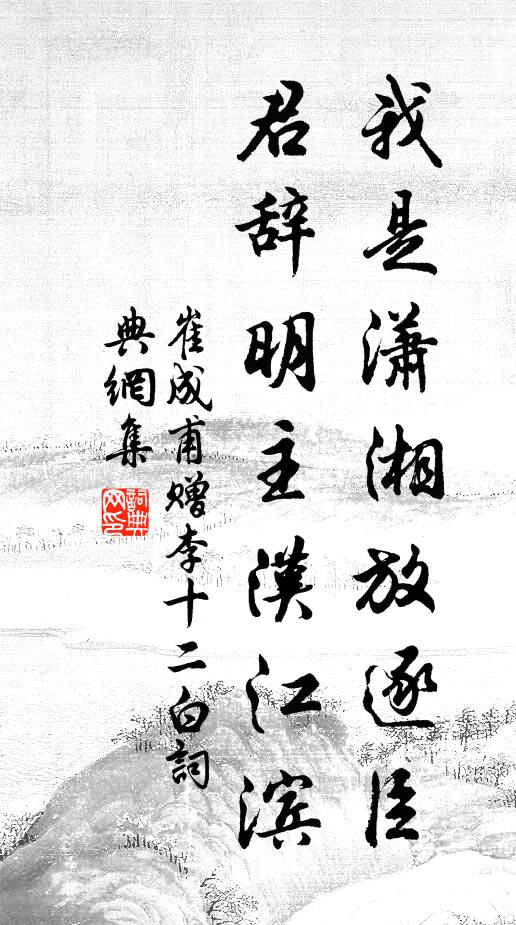 我是潇湘放逐臣
君辞明主汉江滨
崔成甫赠李十二白詞
典網集
詞典网印